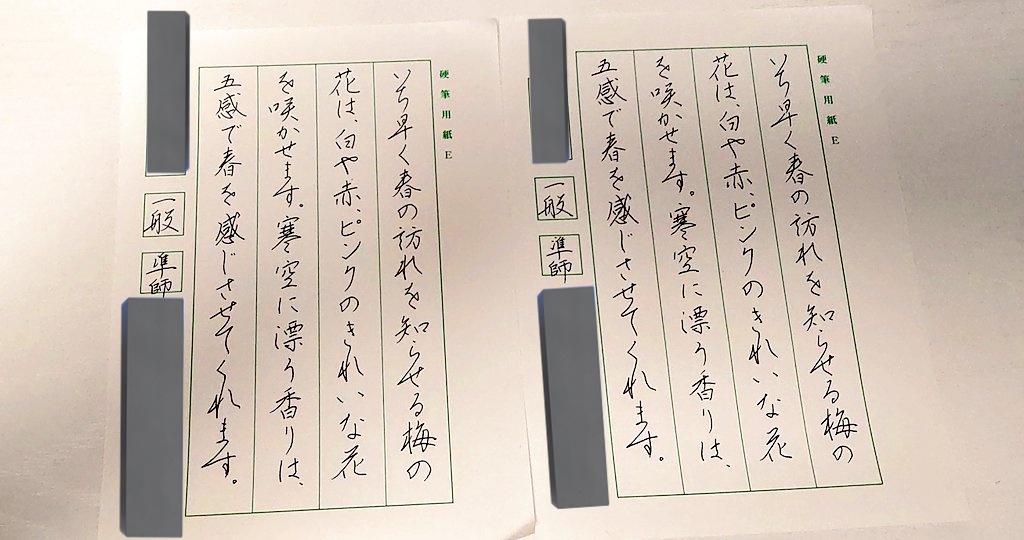 硬筆用紙E
いち早く春の訪れを知らせる梅の
花は、白や赤、ピンクのきれいな花
を咲かせます。寒空に漂う香りは、
五感で春を感じさせてくれます。
一般
準師
硬筆用紙E
いち早く春の訪れを知らせる梅の
花は、白や赤、ピンクのきれいな花
を咲かせます。寒空に漂う香りは、
五感で春を感じさせてくれます。
一般
準師